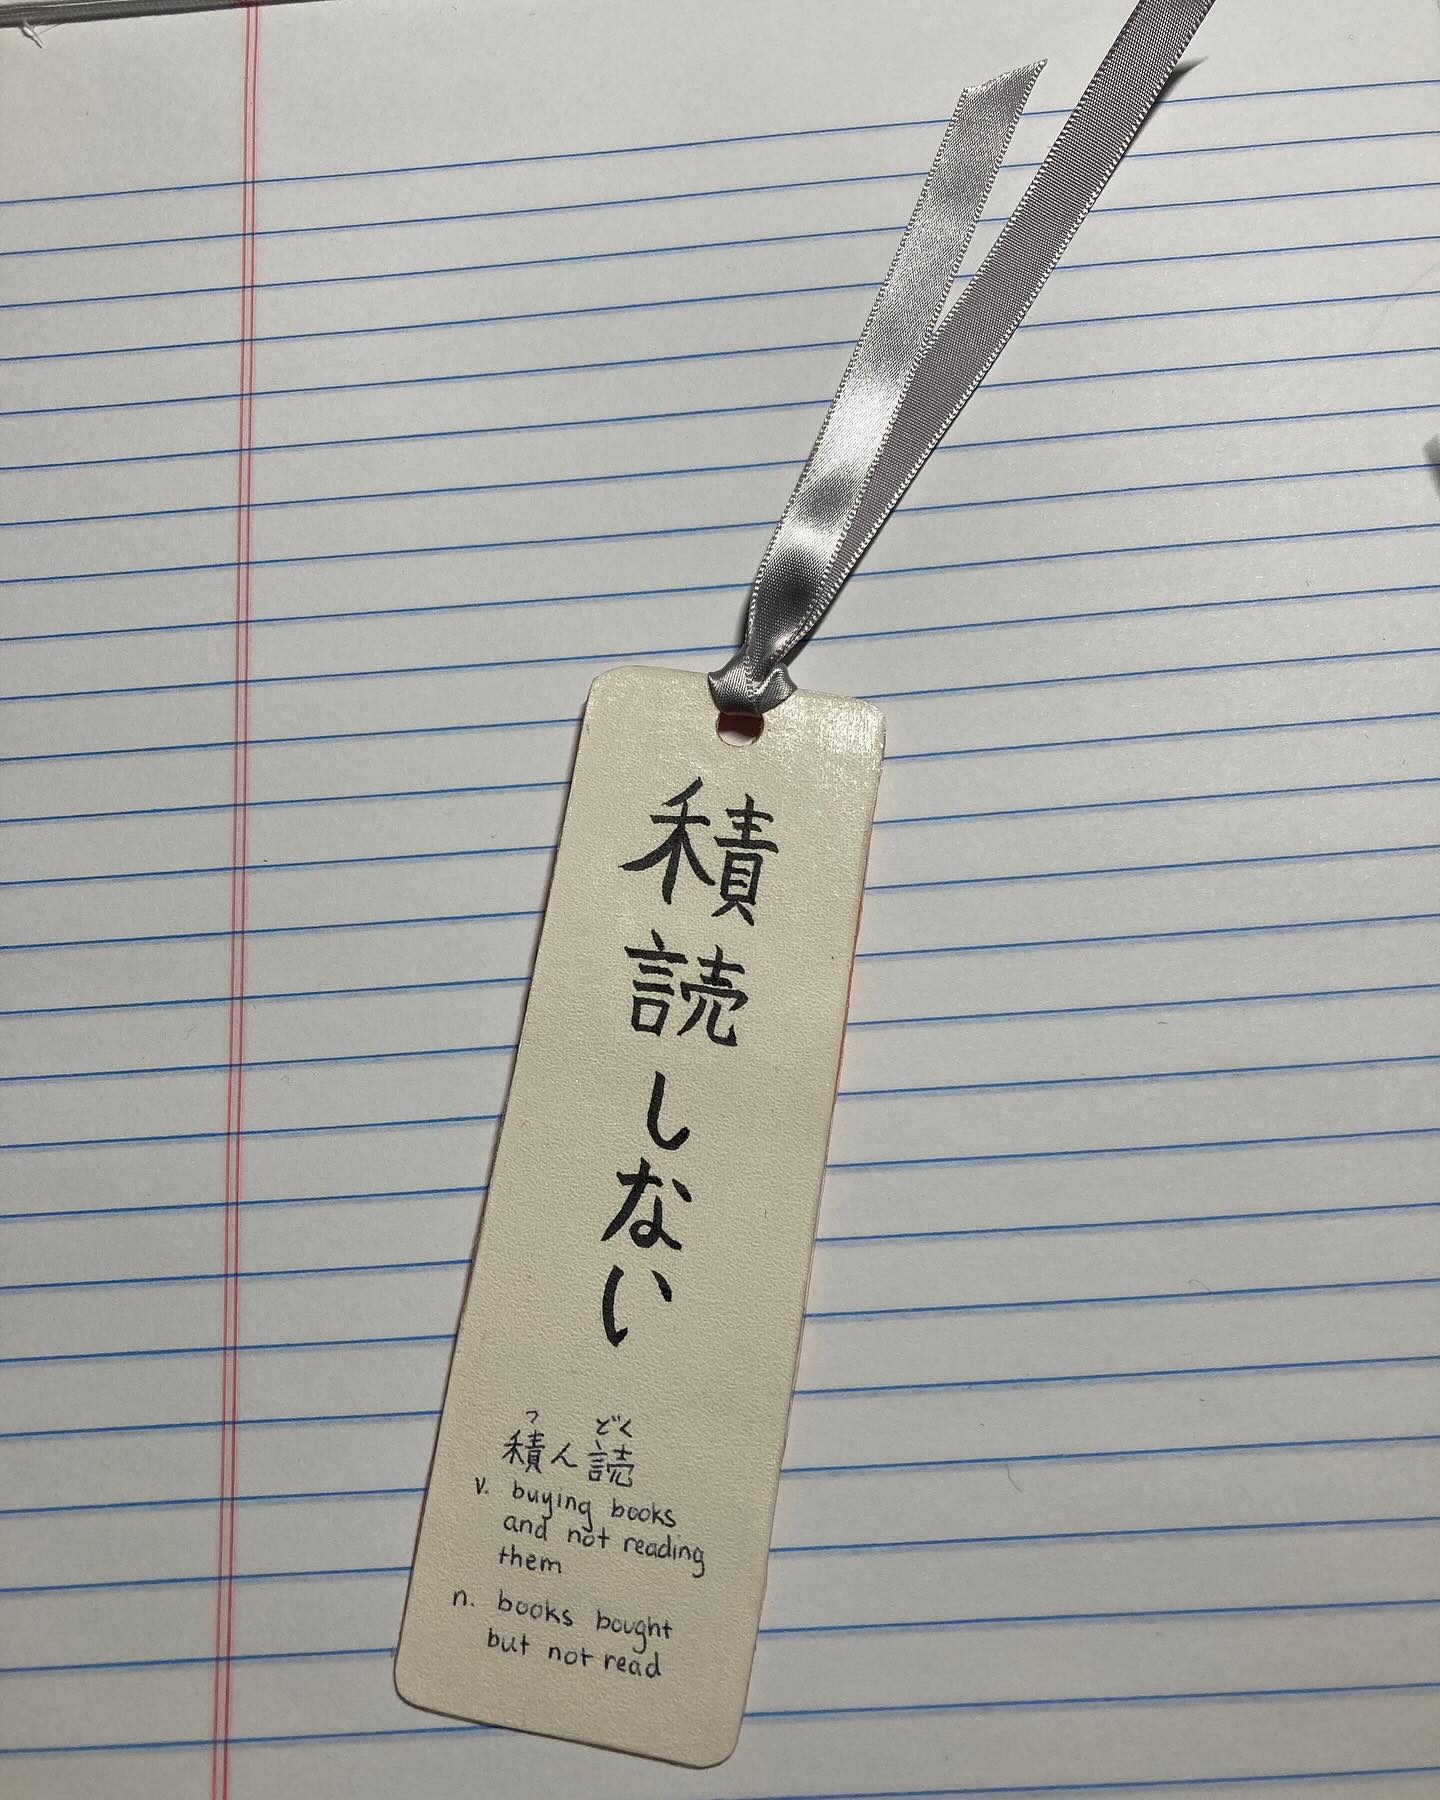 積読しない
つ どく
積ん読
v. buying books
and not reading
them
n. books bought
but not read